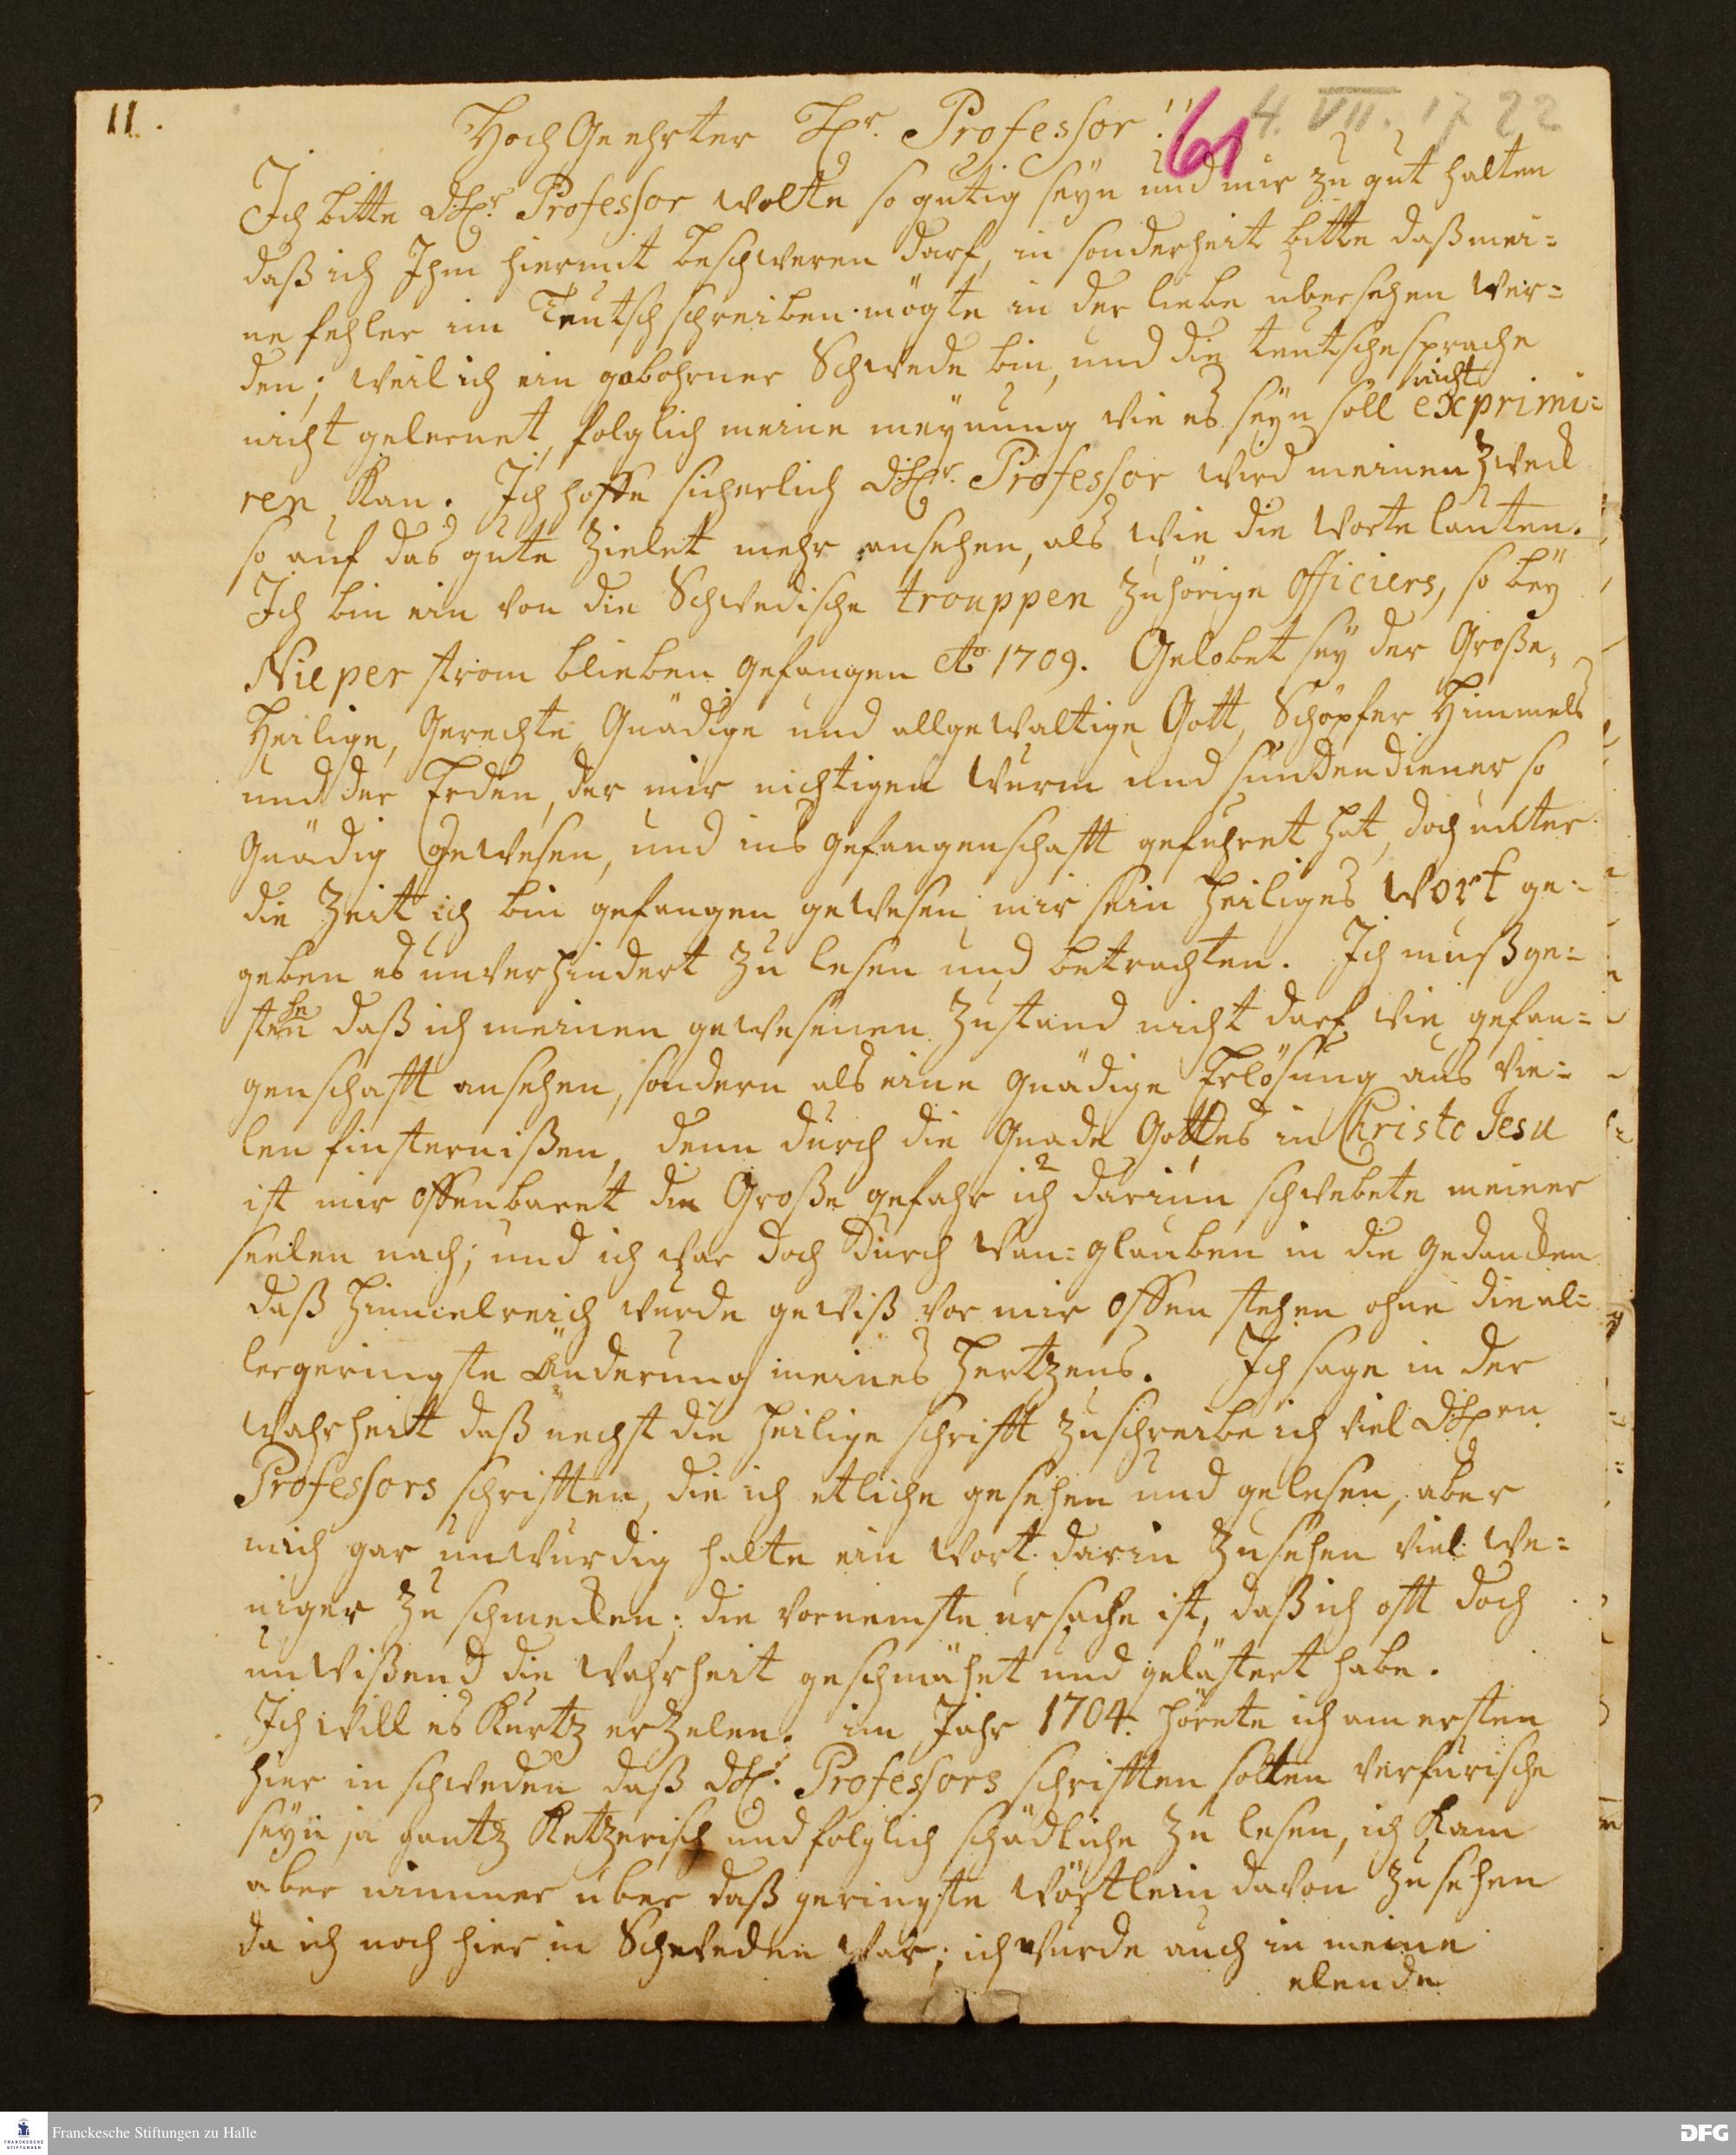 11.
HochGeehrter Hr. Professor!
61
4. VII. 1722
Ich bitte dHr. Professor wolte so gutig seÿn und mir zu gut halten
daß ich Ihm hiermit beschweren darf, in sonderheit bitte daß mei=
ne fehler im Teutsch schreiben mögte in der liebe ubersehen wer=
den; weil ich ein gebohrner Schwede bin, und die teutsche sprache
nicht gelernet, folglich meine meÿnung wie es seÿn soll nicht exprimi=
ren kan. Ich hoffe sicherlich dHr. Professor wird meinen Zweck
so auf das gute Zielet mehr ansehen, als wie die Worte lauten.
Ich bin ein von die Schwedische trouppen Zuhörige Officiers, so beÿ
Nieper strom blieben gefangen Ao 1709. Gelobet seÿ der Große,
Heilige, Gerechte Gnädige und allgewaltige Gott, Schöpfer Himmels
und der Erden, der mir nichtigen Wurm und sundendiener so
Gnädig Gewesen, und ins gefangenschafft gefuhret hat, doch unter
die Zeit ich bin gefangen gewesen mir sein Heiliges Wort ge=
geben es unverhindert Zu lesen und betrachten. Ich muß ge=
stehen daß ich meinen gewesenen Zustand nicht darf wie gefan=
genschafft ansehen, sondern als eine Gnädige Erlösung aus vie=
len finsternißen, denn durch die Gnade Gottes in Christo Jesu
ist mir offenbaret die Große gefahr ich darinn schwebete meiner
seelen nach; und ich war doch durch Wan=glauben in die Gedancken
daß Himmelreich wurde gewiß vor mir offen stehen ohne die al=
lergeringste Änderung meines Hertzens. Ich sage in der
Wahrheit daß nechst die Heilige schrifft Zuschreibe ich viel dHren
Professors schrifften, die ich etliche gesehen und gelesen, aber
mich gar unwurdig halte ein Wort darin Zusehen viel we=
niger Zu schmecken; die vornemste ursache ist, daß ich offt doch
unwißend die Wahrheit geschmähet und gelästert habe.
Ich will es Kurtz erZelen. im Jahr 1704. hörete ich am ersten
hier in schweden daß dHr. Professors schrifften solten verfurische
seÿn ja gantz Ketzerisch und folglich schädliche Zu lesen, ich kam
aber nimmer uber daß geringste Wörtlein davon Zusehen
da ich noch hier in Schweden war; ich wurde auch in meine
elende
Franckesche Stiftungen zu Halle
DFG